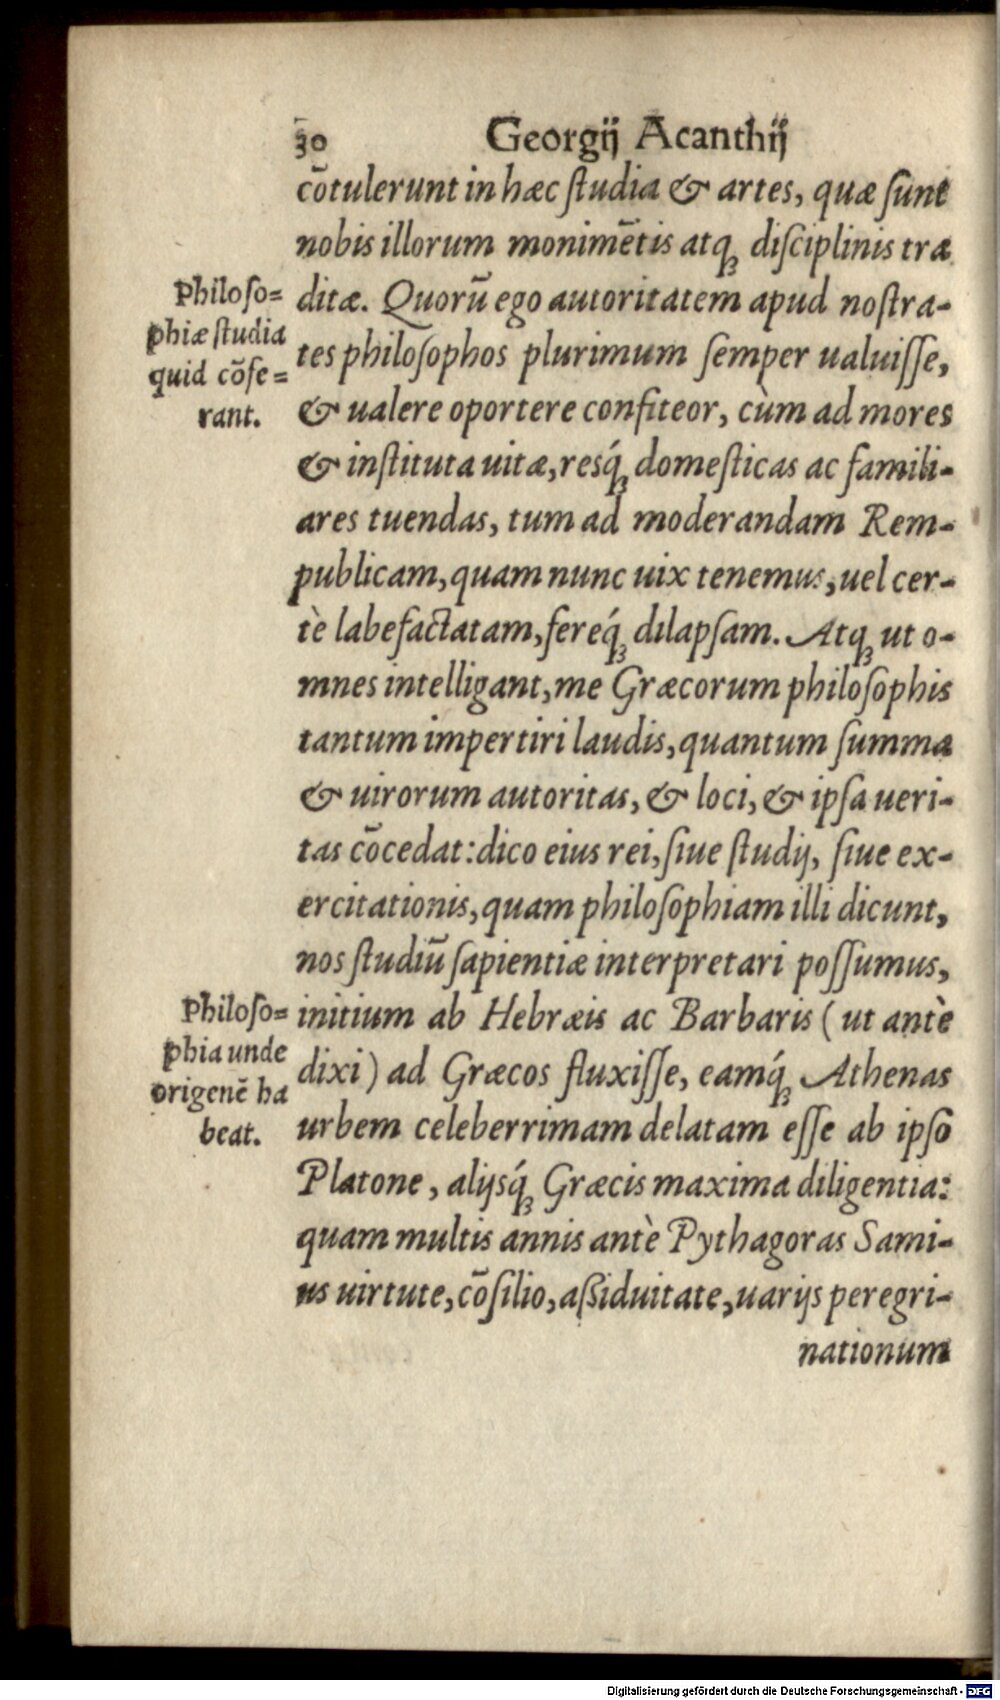 30 Georgij Acanthij
cōtulerunt in hæc ſtudia & artes, quæ ſunt
nobis illorum monimētis atq; diſciplinis tra
ditæ. Quorū ego autoritatem apud noſtra-
tes philoſophos plurimum ſemper ualuiſſe,
& ualere oportere confiteor, cùm ad mores
& inſtituta uitæ, resq́; domeſticas ac famili-
ares tuendas, tum ad moderandam Rem-
publicam, quam nunc uix tenemus, uel cer-
tè labefactatam, fereq́; dilapſam. Atq; ut o-
mnes intelligant, me Græcorum philoſophis
tantum impertiri laudis, quantum ſumma
& uirorum autoritas, & loci, & ipſa ueri-
tas cōcedat: dico eius rei, ſiue ſtudij, ſiue ex-
ercitationis, quam philoſophiam illi dicunt,
nos ſtudiū ſapientiæ interpretari poſſumus,
initium ab Hebræis ac Barbaris (ut antè
dixi) ad Græcos fluxiſſe, eamq́; Athenas
urbem celeberrimam delatam eſſe ab ipſo
Platone, alijsq́; Græcis maxima diligentia:
quam multis annis antè Pythagoras Sami-
us uirtute, cōſilio, aſsiduitate, uarijs peregri-
nationum
Philoſo=
phiæ ſtudia
quid cōfe=
rant.
Philoſo=
phia unde
origenē ha
beat.
Digitalisierung gefördert durch die Deutsche Forschungsgemeinschaft - DFG